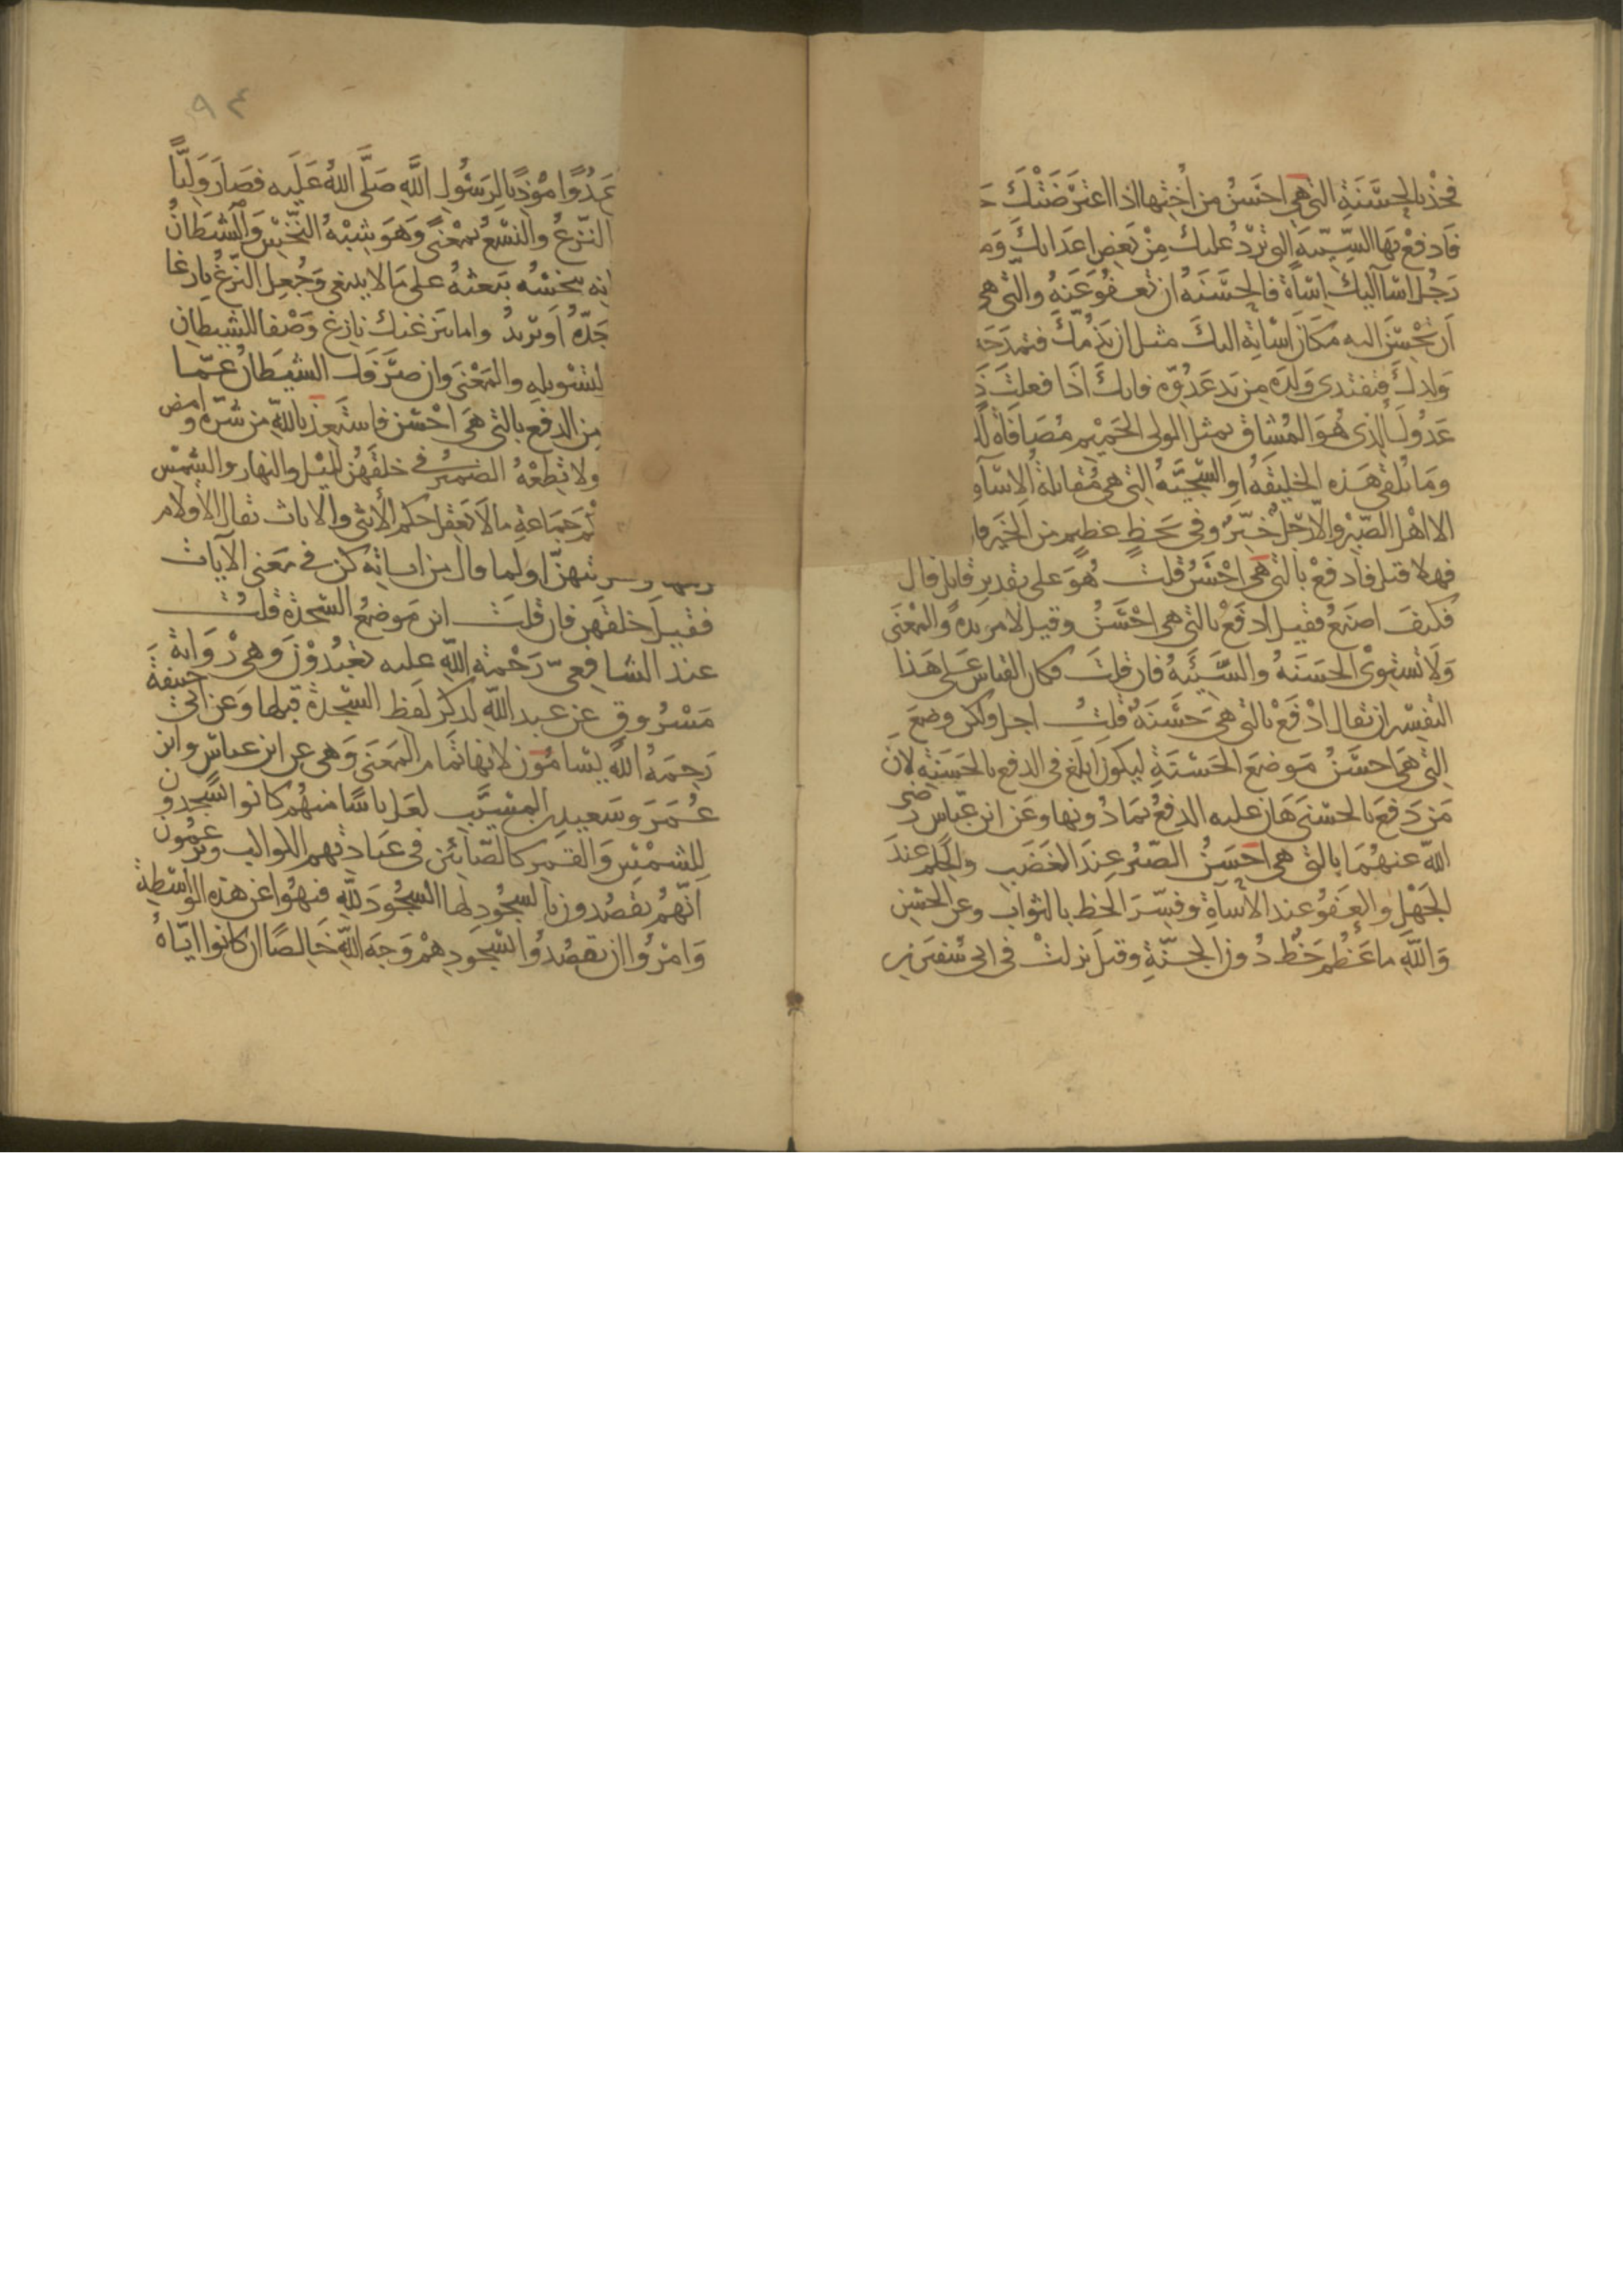 فخذ بالحسنة التي هي احسن من أختها اذا اعترضتك
فادفع بها السيئة التي ترد عليك من بعض اعدائك
رجل اسآ اليك اسآة فالحسنة ان تعفو عنه والتي هي
ان تحسن اليه مكان اساته اليك مثل ان يذمك فتمدحه
ولدك فتفتدى ولده من يد عدوه فانك اذا فعلت
عدوك الذى هو المشاق مثل الولى الحميم مصافاة
وما يلقى هذه الخليقة او السجية التي هي مقابلة الاساة
الا اهل الصبر والا رجل خير وفى بحظ عظيم من الخير
فهلا قيل فادفع بالتي هي احسن قلت هو على تقدير قايل قال
فكيف اصنع فقيل ادفع بالتي هي احسن وقيل لا مزيدة والمعنى
ولا تستوى الحسنة والسيئة فان قلت فكان القياس على هذا
التفسير ان يقال ادفع بالتي هي حسنة قلت اجل ولكن وضع
التي هي احسن موضع الحسنة ليكون ابلغ فى الدفع بالحسنة لان
من دفع بالحسنى هان عليه الدفع بما دونها وعن ابن عباس رضى
الله عنهما بالتي هي احسن الصبر عند الغضب والحلم عند
الجهل والعفو عند الاسآة وفسر الحظ بالثواب وعن الحسن
والله ما عظم حظ دون الجنة وقيل نزلت فى ابى سفين بن
٩٤
عدوا موذيا لرسول الله صلى الله عليه فصار وليا
النزغ والنسغ بمعنى وهو شبه النخس والشيطان
انه ينخسه يبعثه على ما لا ينبغى وجعل النزغ نازغا
جده او تريد واما ينزغنك نازغ وصفا للشيطان
لتسويله والمعنى وان صرفك الشيطان عما
من الدفع بالتي هي احسن فاستعذ بالله من شره وامض
ولا تطعه الضمير فى خلقهن لليل والنهار والشمس
جماعة ما لا يعقل حكم الأنثى والاناث يقال الأقلام
بريتهن او لما قال من اياته كن فى معنى الآيات
فقيل خلقهن فان قلت اين موضع السجدة قلت
عند الشافعى رحمة الله عليه تعبدون وهى رواية
مسروق عن عبد الله لذكر لفظ السجدة قبلها وعن ابى حنيفة
رحمه الله يسامون لانها تمام المعنى وهى عن ابن عباس وابن
عمر وسعيد بن المسيب لعل ناسا منهم كانوا يسجدون
للشمس والقمر كالصابئين فى عبادتهم الكواكب ويزعمون
انهم يقصدون بالسجود لها السجود لله فنهوا عن هذه الواسطة
وامروا ان يقصدوا بسجودهم وجه الله خالصا ان كانوا اياه